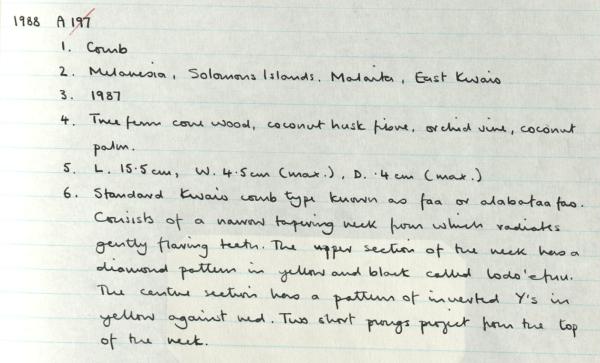 1988 A 197
1. Comb
2. Melanesia, Solomons Islands. Malaita, East Kwaio
3. 1987
4. Tree fern core wood, coconut husk fibre, orchid vine, coconut
palm.
5. L. 15.5cm, W. 4.5cm (max.), D. .4cm (max.)
6. Standard Kwaio comb type known as faa or alabataa fao.
Consists of a narrow tapering neck from which radiates
gently flaring teeth. The upper section of the neck has a
diamond pattern in yellow and black called lodo'efuu.
The centre section has a pattern of inverted Y's in
yellow against red. Two short prongs project from the top
of the neck.